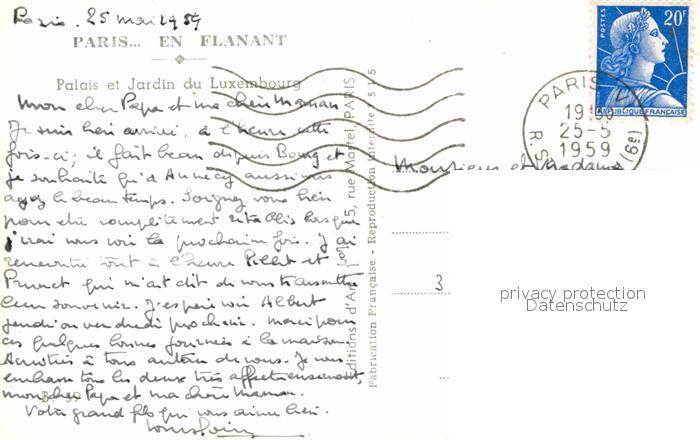 Paris. 25 mai 1959
PARIS... EN FLANANT
Palais et Jardin du Luxembourg
Mon cher Papa et ma chère Maman
Je suis bien arrivé, à l'heure cette
fois-ci; il fait beau depuis Bourg et
je souhaite qu'à Annecy aussi vous
ayez le beau temps. Soignez vous bien
pour être complètement rétablis lorsque
j'irai vous voir la prochaine fois. J'ai
rencontré tout à l'heure Pellet et
qui m'ont dit de vous transmettre
leur souvenir. J'espère voir Albert
jeudi ou vendredi prochain. Merci pour
ces quelques bonnes journées à la maison.
Amitiés à tous autour de vous. Je vous
embrasse tous les deux très affectueusement,
mon cher Papa et ma chère Maman.
Votre grand fils qui vous aime bien.
B. 39
Editions d'Art, 15, rue Martel, PARIS
Fabrication Française - Reproduction Interdite
POSTES
20F
REPUBLIQUE FRANCAISE
PARIS V
25-5
1959
Monsieur et Madame
3
privacy protection
Datenschutz